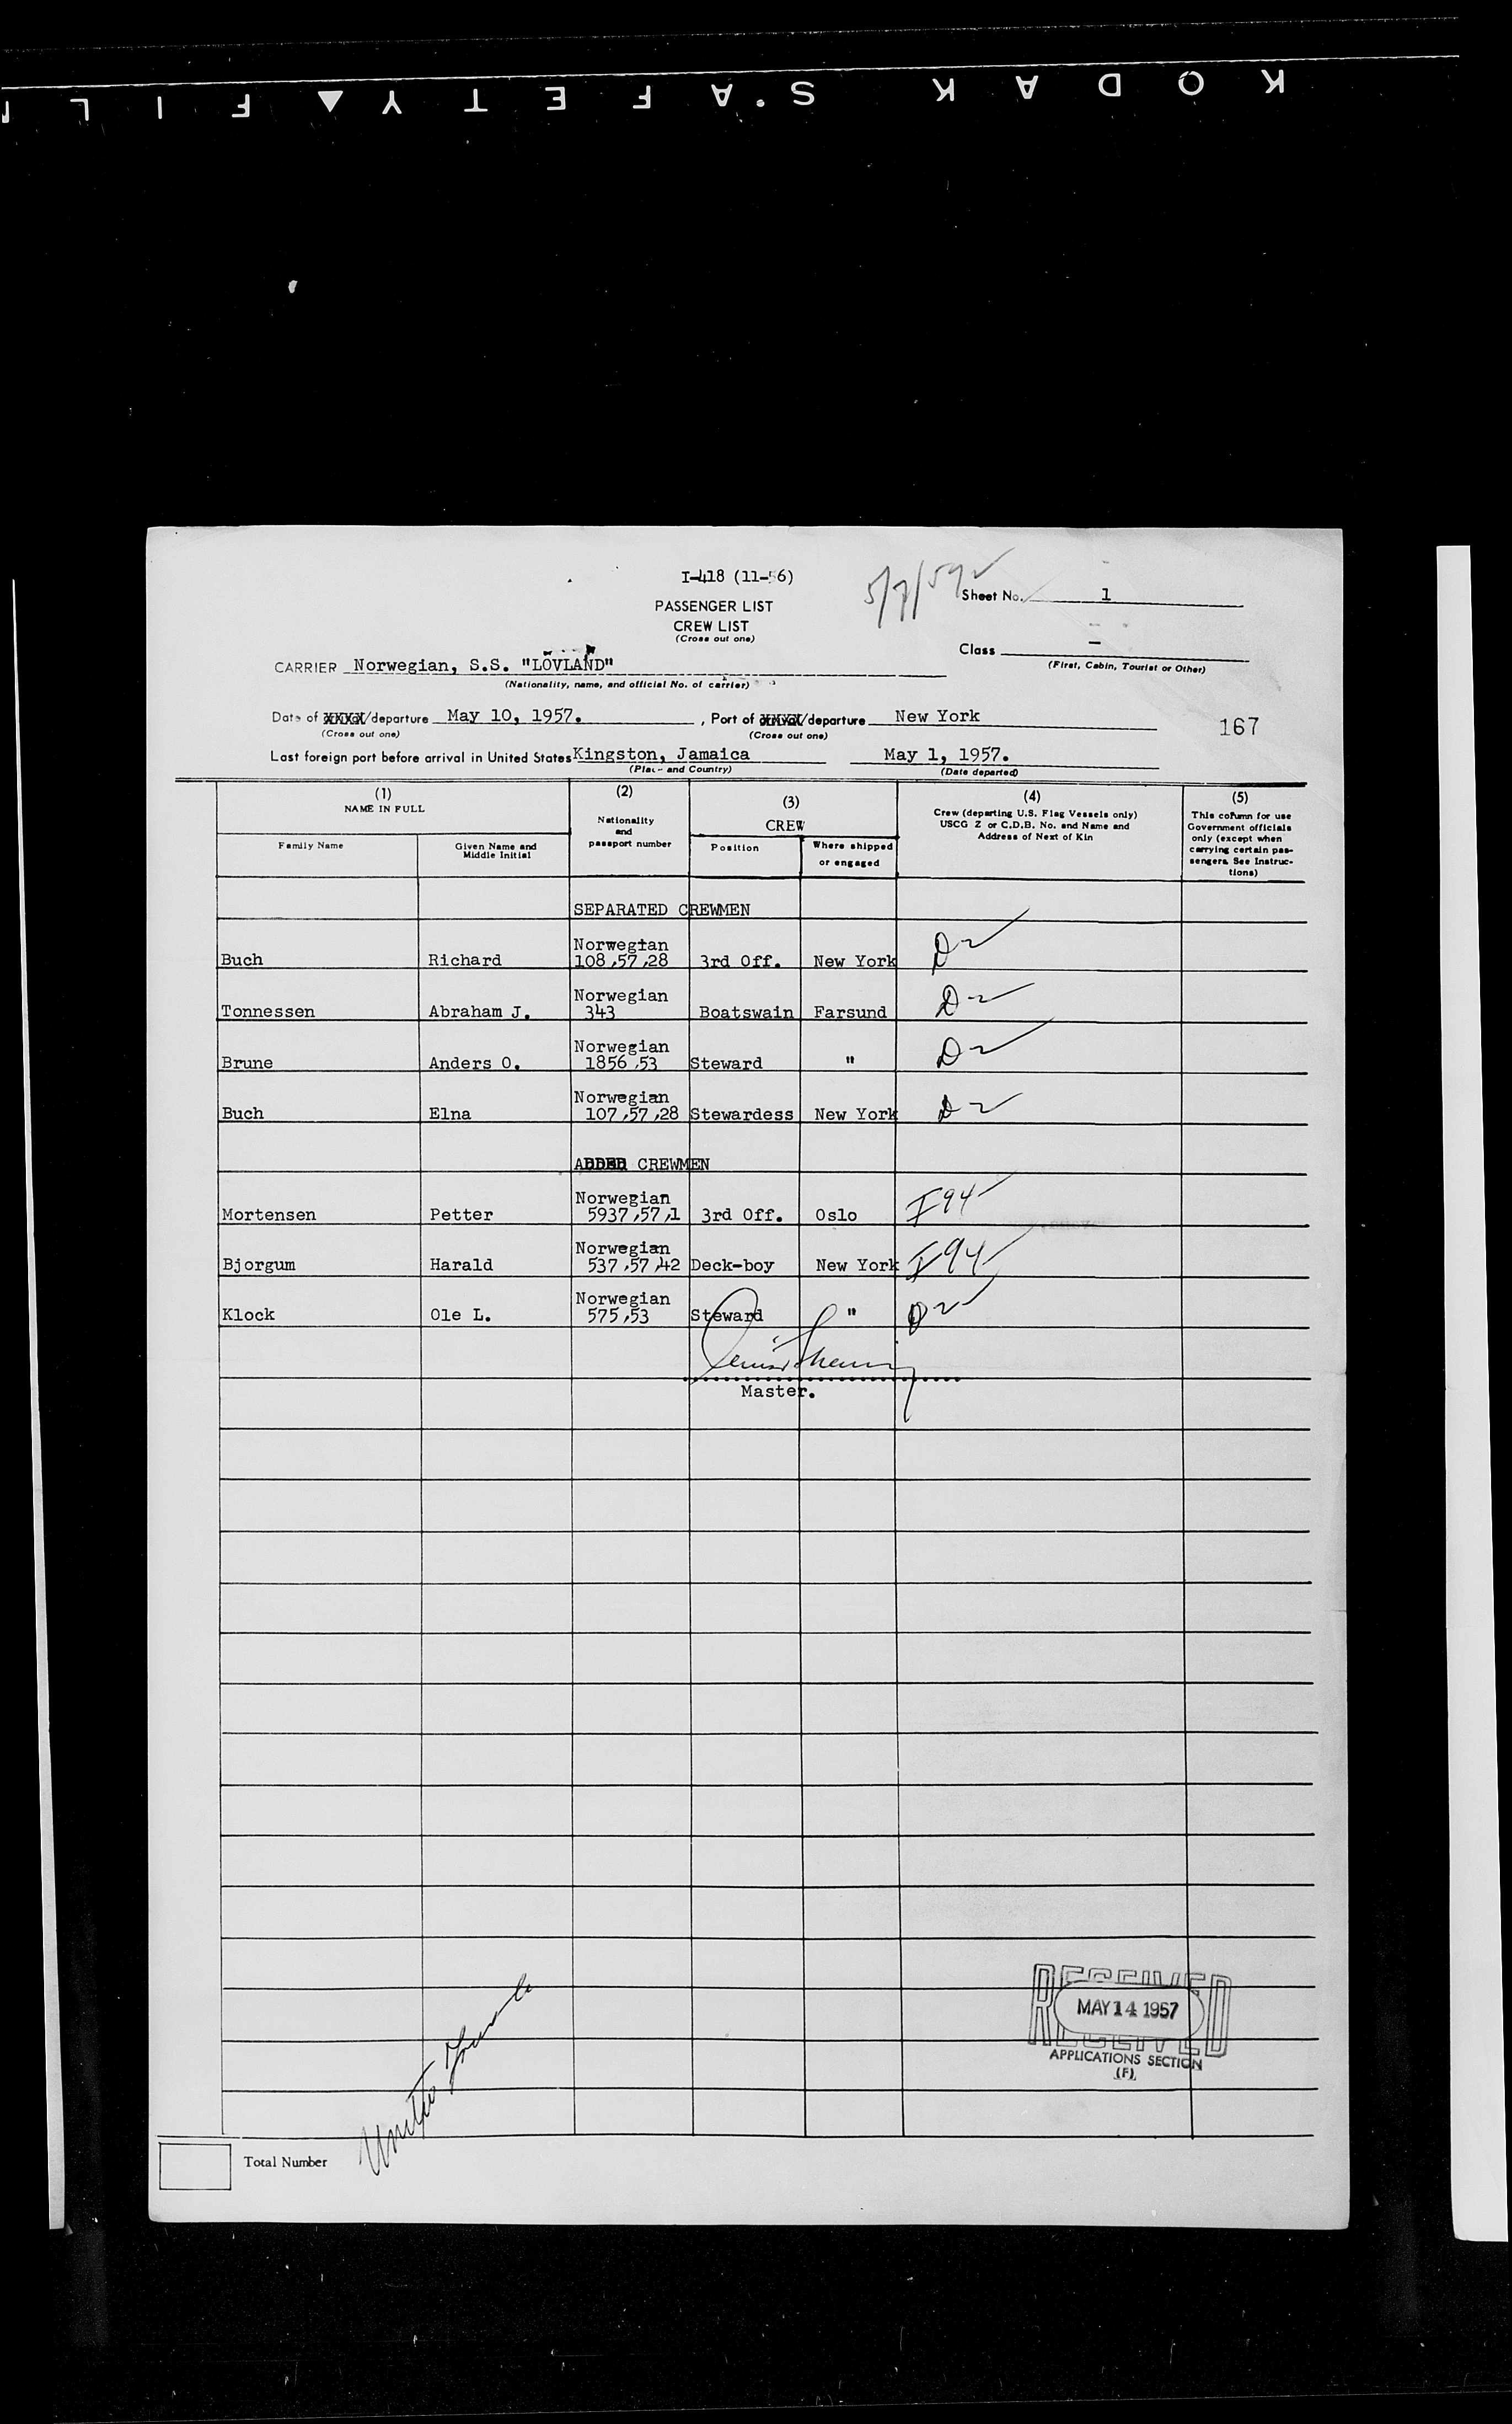 KODAK SAFETY FIL
I-418 (11-56)
5/7/57
PASSENGER LIST
CREW LIST
(Cross out one)
Sheet No. 1
Class -
(First, Cabin, Tourist or Other)
CARRIER Norwegian, S.S. "LÖVLAND"
(Nationality, name, and official No. of carrier)
Date of /departure May 10, 1957. , Port of /departure New York
(Cross out one) (Cross out one)
167
Last foreign port before arrival in United States Kingston, Jamaica May 1, 1957.
(Place and Country) (Date departed)
(1) NAME IN FULL
Family Name
Given Name and Middle Initial
(2)
Nationality
and
passport number
(3)
CREW
Position
Where shipped
or engaged
(4)
Crew (departing U.S. Flag Vessels only)
USCG Z or C.D.B. No. and Name and
Address of Next of Kin
(5)
This column for use
Government officials
only (except when
carrying certain pas-
sengers. See Instruc-
tions)
SEPARATED CREWMEN
Norwegian
Buch Richard 108,57,28 3rd Off. New York D
Norwegian
Tonnessen Abraham J. 343 Boatswain Farsund D
Norwegian
Brune Anders O. 1856,53 Steward " D
Norwegian
Buch Elna 107,57,28 Stewardess New York D
ADDED CREWMEN
Norwegian
Mortensen Petter 5937,57,1 3rd Off. Oslo I94
Norwegian
Bjorgum Harald 537,57,42 Deck-boy New York I94
Norwegian
Klock Ole L. 575,53 Steward " D
Master.
RECEIVED
MAY 14 1957
RECEIVED
APPLICATIONS SECTION
(F)
United
Total Number